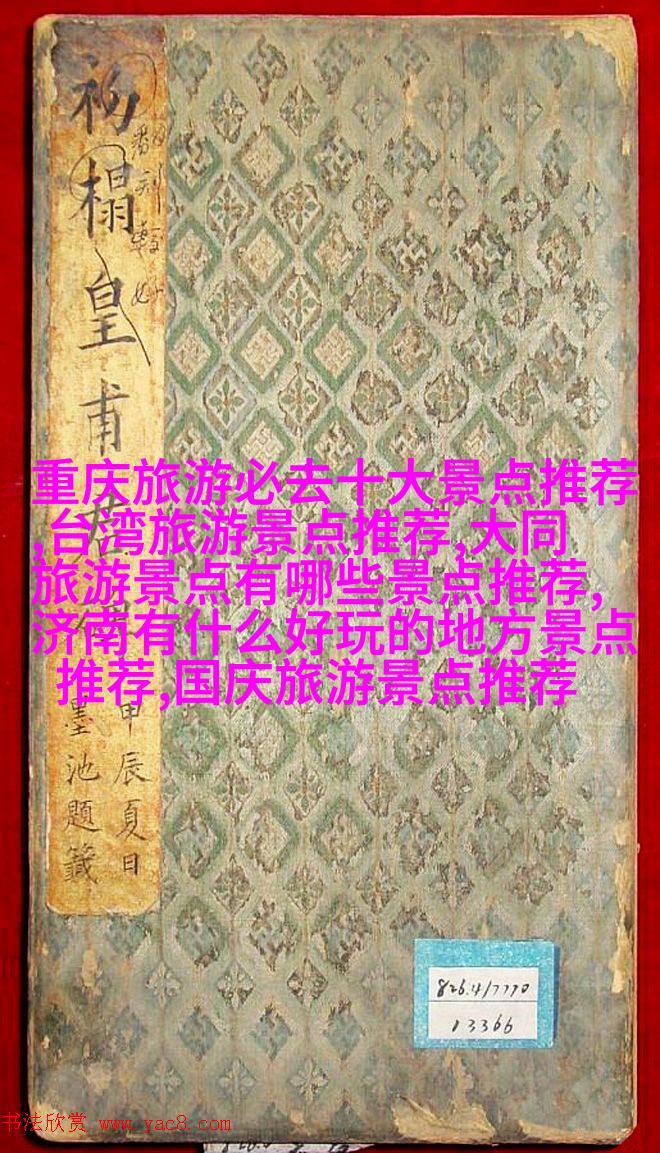 初榻皇甫君碑
翻刻較好
甲辰夏日
墨池題籤
重庆旅游必去十大景点推荐
,台湾旅游景点推荐,大同
旅游景点有哪些景点推荐,
济南有什么好玩的地方景点
推荐,国庆旅游景点推荐
826.4/7770
13366
书法欣赏 www.yac8.com